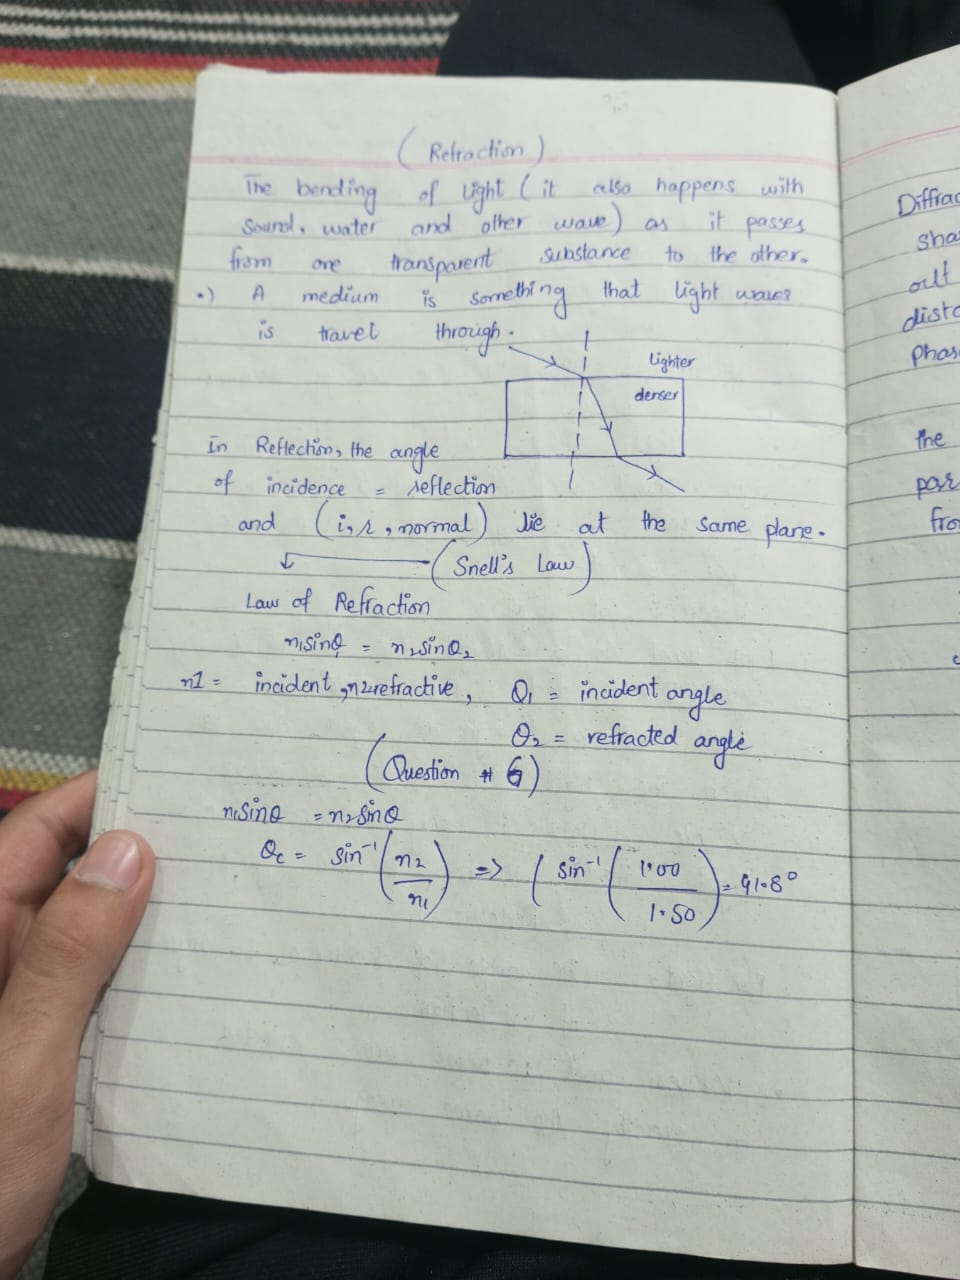 (Refraction)
The bending of light (it also happens with
sound, water and other wave) as it passes
from one transparent substance to the other.
•) A medium is something that light waves
is travel through.
lighter
denser
In Reflection, the angle
of incidence = reflection
and (i, r, normal) lie at the same plane.
(Snell's Law)
Law of Refraction
n₁sinθ₁ = n₂sinθ₂
n1 = incident, n2 refractive, θ₁ = incident angle
θ₂ = refracted angle
(Question # 6)
n₁sinθ = n₂sinθ
θc = sin⁻¹(n₂/n₁) => (sin⁻¹(1.00/1.50) = 41.8°
Diffrac
sha
out
dista
phas
the
par
fro